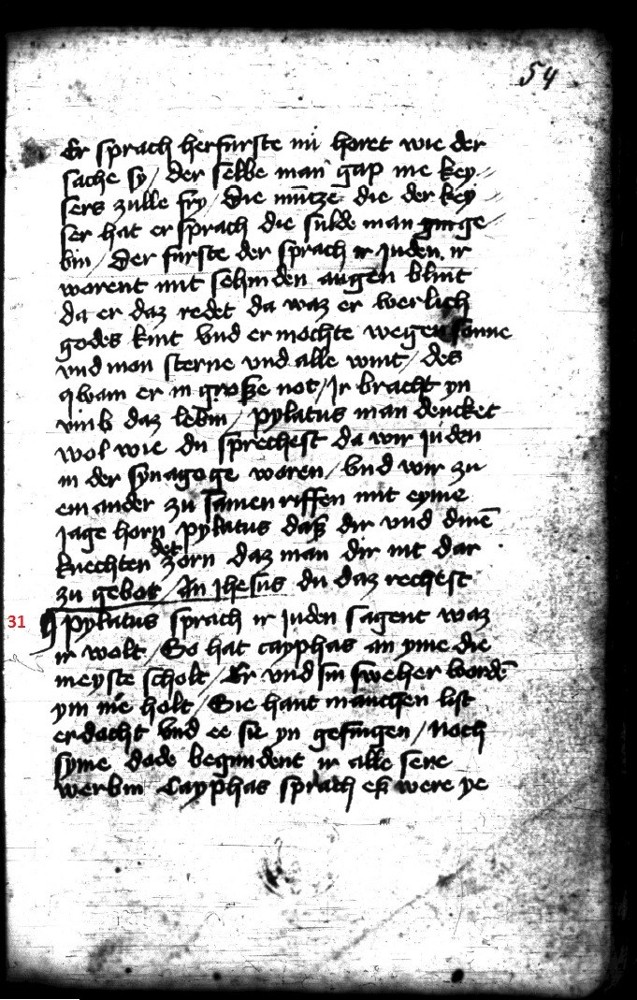 54
Er sprach herfurste nu horet wie der
sache sy / der selbe man gap nie key
sers zulle fry / Die mūtze die der key
ser hat er sprach die sulde man ge
bin / Der furste der sprach ir Juden ir
worent mit sehinden augen blint
da er daz redet da waz er werlich
godes kint vnd er mochte wegen sonne
vnd mon sterne vnd alle wint / des
qwam er in große not / Ir bracht yn
vmb daz lebin / pylatus man dencket
wol wie du sprechest da wir juden
in der synagoge woren / vnd wir zu
ein ander zu samen riffen mit eyme
Jage horn pylatus daß dir vnd dinē
knechten det zorn daz man dir nit dar
zu gebot / An Jhesus du daz rechest
31 pylatus sprach ir juden sagent waz
ir wolt / So hat cayphas an yme die
meyste scholt / Er vnd sin sweher wordē
ym nie holt / Sie hant manchen list
erdacht vnd ee sie yn gefingen / Noch
syme dode begundent ir alle sere
werbin Cayphas sprach eß were ye